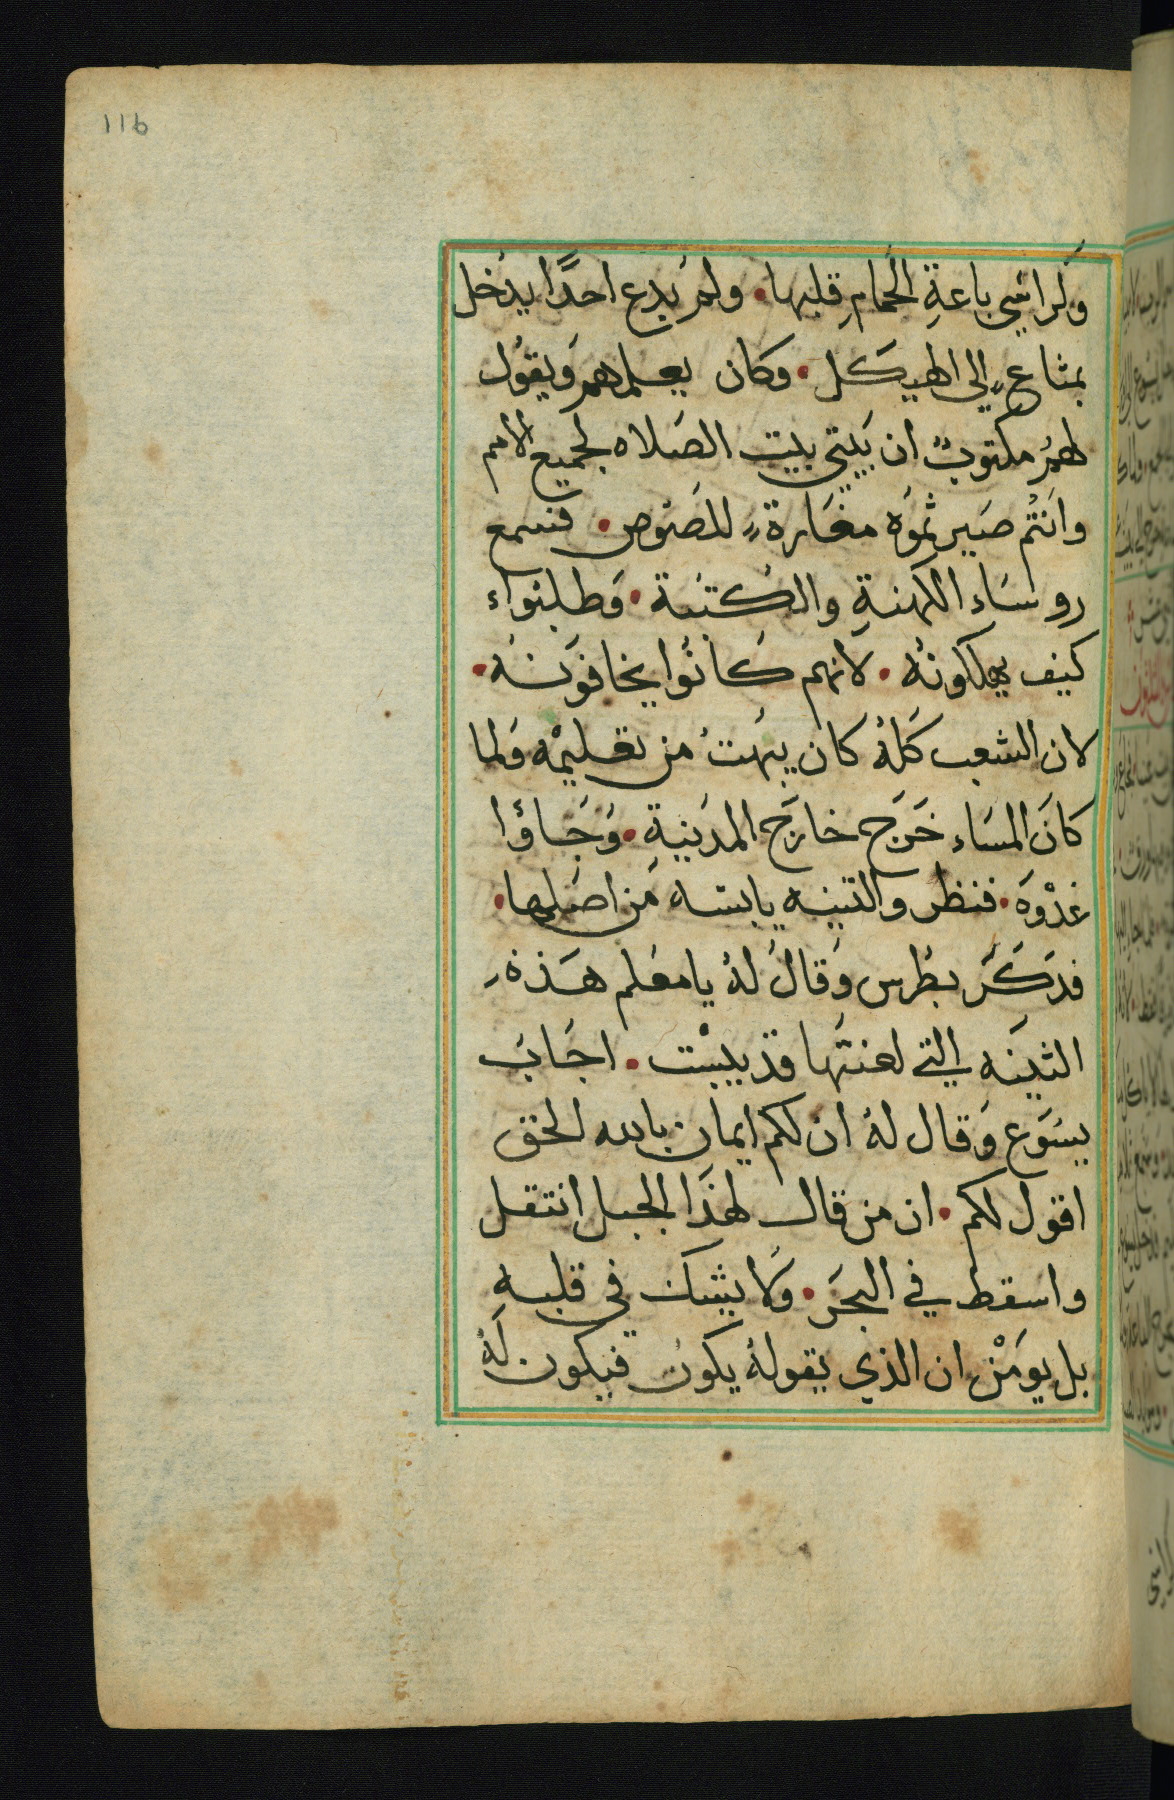 116
وكراسي باعةِ الحمامِ قلبها. ولم يدع احدًا يدخل
بمتاع إلي الهيكل. وكان يعلمهم ويقول
لهم مكتوبٌ ان بيتي بيت الصلاه لجميع الامم
وانتُم صيرتموه مغارة للصوص. فسمع
روساء الكهنةِ والكتبة. وطلبواء
كيف يهلكونهُ. لانهم كانوا يخافونه.
لان الشعب كلهُ كان يبهتُ من تعليمْه ولما
كانَ المسَاء خرج خارج المدينةِ. وجاؤا
غدْوة. فنظروالتينه يابسه من اصلها.
فدكر بطرس وقال لهُ يا معلم هذه
التينه التي لعنتها قد يبسْت. اجاب
يسوع وقال لهُ ان لكم ايمان بالله الحق
اقول لكم. ان من قال لهذا الجبل انتقل
واسقط في البحر. ولا يشك في قلبهِ
بل يومنْ ان الذي يقولهُ يكون فيكون لهُ